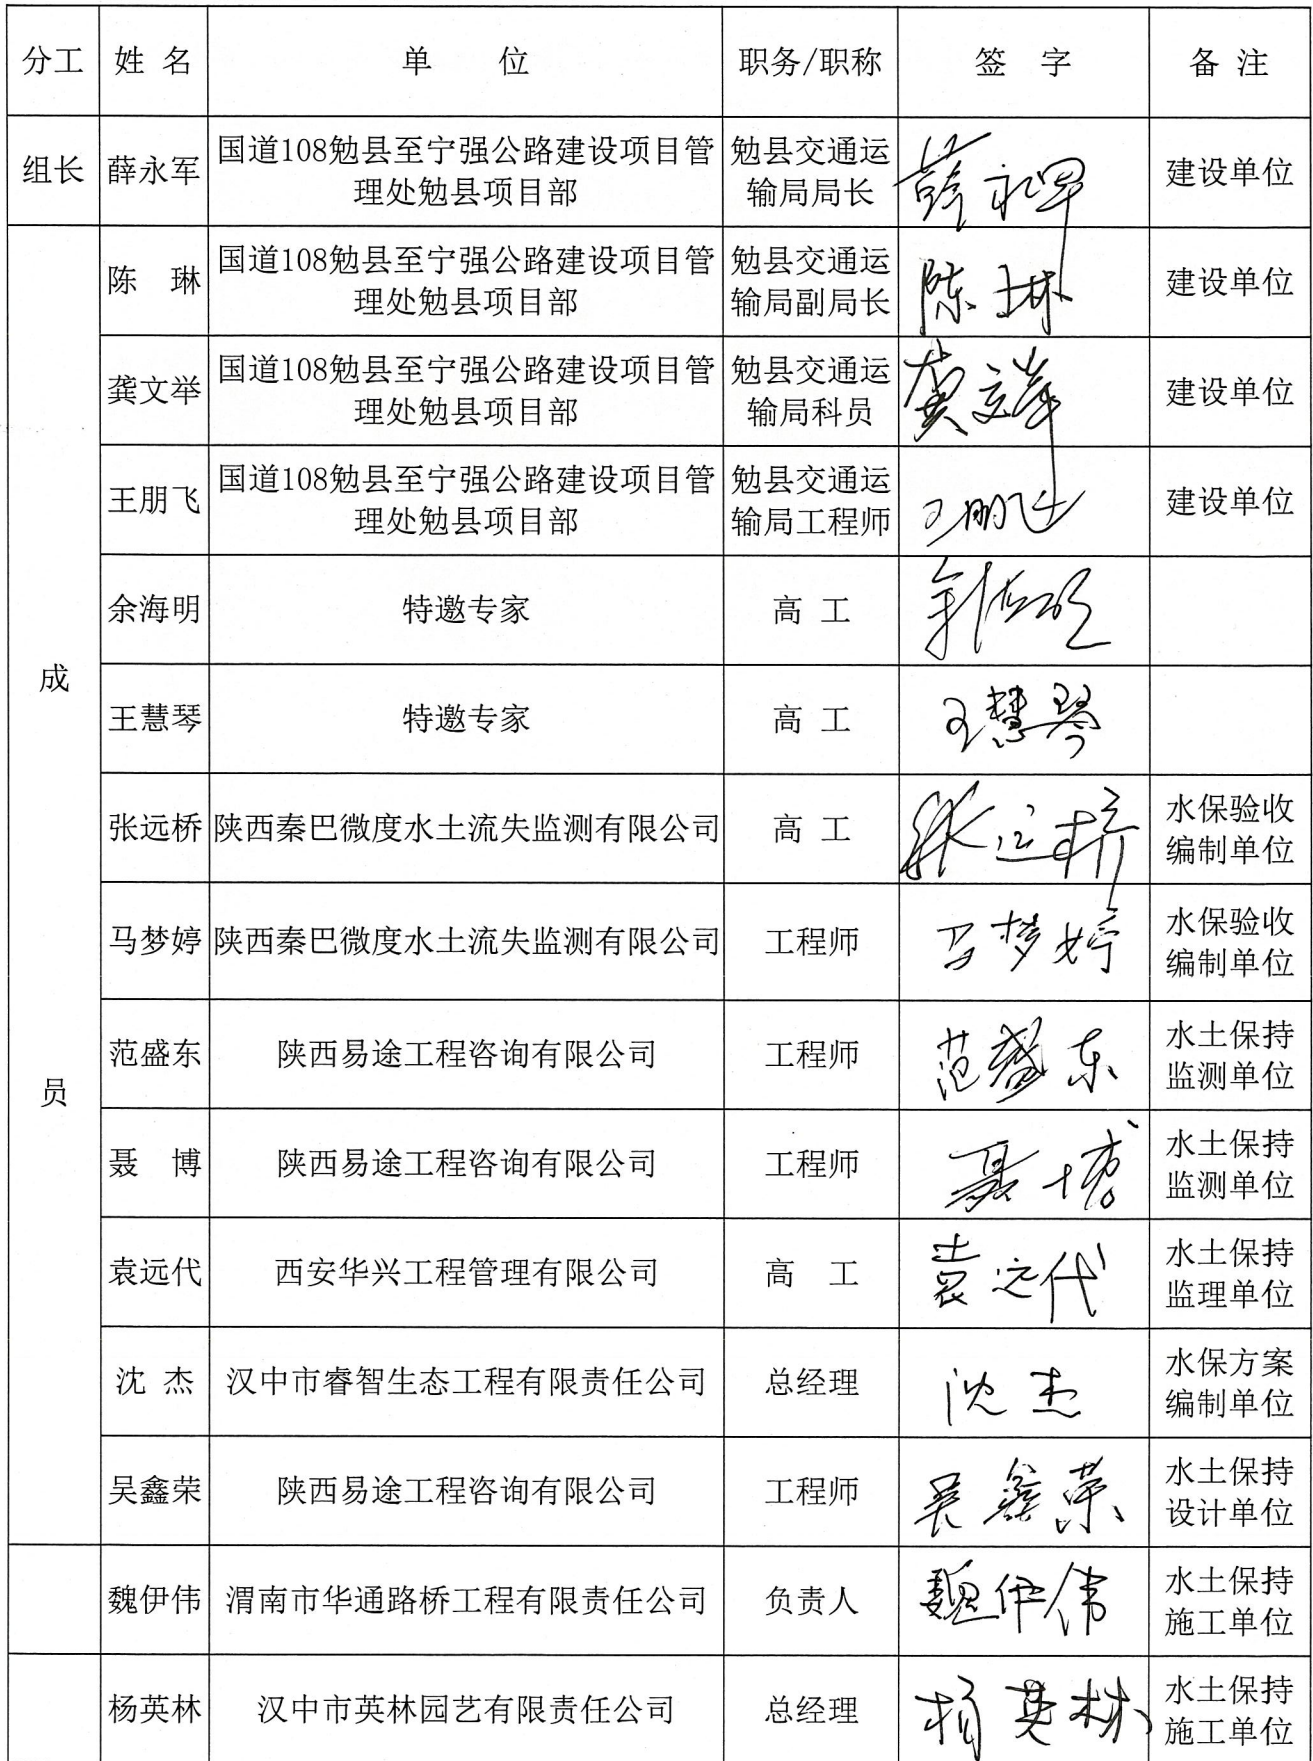 分工 姓 名 单 位 职务/职称 签 字 备 注
组长 薛永军 国道108勉县至宁强公路建设项目管理处勉县项目部 勉县交通运输局局长 薛永军 建设单位
成员
陈 琳 国道108勉县至宁强公路建设项目管理处勉县项目部 勉县交通运输局副局长 陈琳 建设单位
龚文举 国道108勉县至宁强公路建设项目管理处勉县项目部 勉县交通运输局科员 龚文举 建设单位
王朋飞 国道108勉县至宁强公路建设项目管理处勉县项目部 勉县交通运输局工程师 王朋飞 建设单位
余海明 特邀专家 高 工 余海明
王慧琴 特邀专家 高 工 王慧琴
张远桥 陕西秦巴微度水土流失监测有限公司 高 工 张远桥 水保验收编制单位
马梦婷 陕西秦巴微度水土流失监测有限公司 工程师 马梦婷 水保验收编制单位
范盛东 陕西易途工程咨询有限公司 工程师 范盛东 水土保持监测单位
聂 博 陕西易途工程咨询有限公司 工程师 聂博 水土保持监测单位
袁远代 西安华兴工程管理有限公司 高 工 袁远代 水土保持监理单位
沈 杰 汉中市睿智生态工程有限责任公司 总经理 沈杰 水保方案编制单位
吴鑫荣 陕西易途工程咨询有限公司 工程师 吴鑫荣 水土保持设计单位
魏伊伟 渭南市华通路桥工程有限责任公司 负责人 魏伊伟 水土保持施工单位
杨英林 汉中市英林园艺有限责任公司 总经理 杨英林 水土保持施工单位